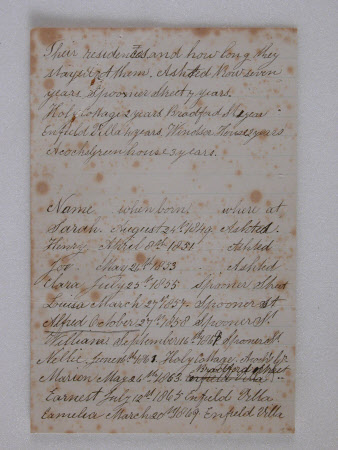 Their residences and how long they
stayed at them. Ashted Row seven
years Spooner Street 7 years.
Holy Cottage 2 years Bradford
Enfield Villa years. Windsor House years
Acocks Green house 3 years.
Name when born where at
Sarah August 24th Ashted.
Henry April 8th 1851 Ashted
Joe May 26th 1853 Ashted
Clara July 25th 1855 Spooner Street
Louisa March 27th 1857 Spooner St
Alfred October 27th 1858 Spooner St
William September 16th Spooner St
Nellie June Holy Cottage,
Bradford Street
Marion May 26th 1863 Enfield Villa
Earnest July 12th 1865 Enfield Villa
Camelia March 20th 1869 Enfield Villa